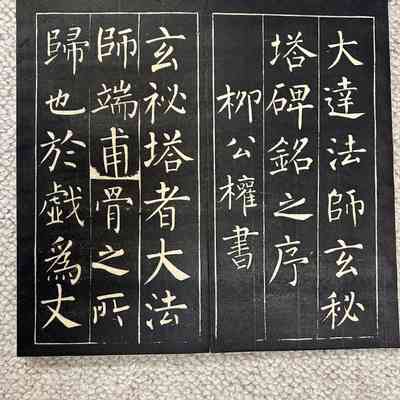 大達法師玄秘
塔碑銘之序
柳公權書
玄祕塔者大法
師端甫骨之所
歸也於戲為丈